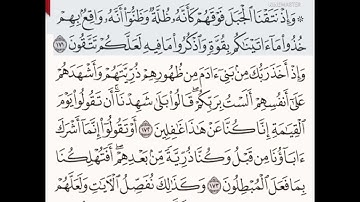 ۞ وَإِذْ نَتَقْنَا ٱلْجَبَلَ فَوْقَهُمْ كَأَنَّهُۥ ظُلَّةٌ وَظَنُّوٓا۟ أَنَّهُۥ وَاقِعٌۢ بِهِمْ
خُذُوا۟ مَآ ءَاتَيْنَٰكُم بِقُوَّةٍ وَٱذْكُرُوا۟ مَا فِيهِ لَعَلَّكُمْ تَتَّقُونَ ١٧١
وَإِذْ أَخَذَ رَبُّكَ مِنۢ بَنِىٓ ءَادَمَ مِن ظُهُورِهِمْ ذُرِّيَّتَهُمْ وَأَشْهَدَهُمْ
عَلَىٰٓ أَنفُسِهِمْ أَلَسْتُ بِرَبِّكُمْ ۖ قَالُوا۟ بَلَىٰ ۛ شَهِدْنَآ ۛ أَن تَقُولُوا۟ يَوْمَ
ٱلْقِيَٰمَةِ إِنَّا كُنَّا عَنْ هَٰذَا غَٰفِلِينَ ١٧٢ أَوْ تَقُولُوٓا۟ إِنَّمَآ أَشْرَكَ
ءَابَآؤُنَا مِن قَبْلُ وَكُنَّا ذُرِّيَّةً مِّنۢ بَعْدِهِمْ ۖ أَفَتُهْلِكُنَا
بِمَا فَعَلَ ٱلْمُبْطِلُونَ ١٧٣ وَكَذَٰلِكَ نُفَصِّلُ ٱلْءَايَٰتِ وَلَعَلَّهُمْ